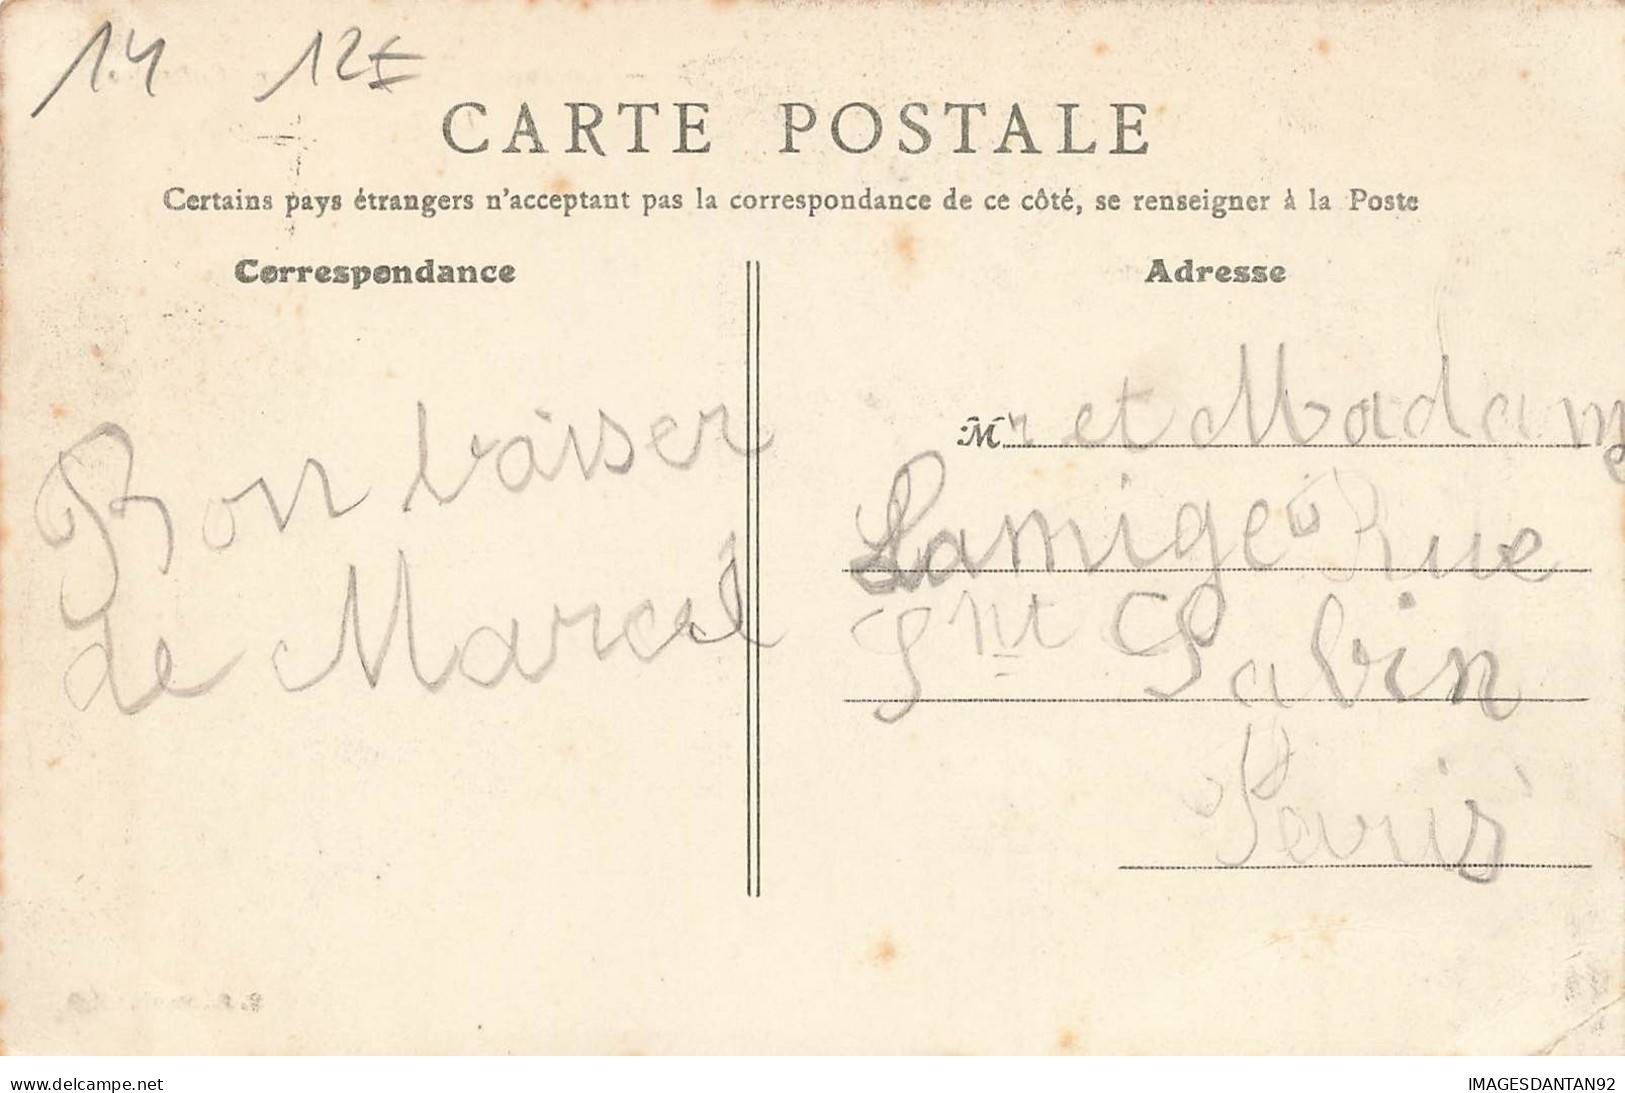 14 12€
CARTE POSTALE
Certains pays étrangers n'acceptant pas la correspondance de ce côté, se renseigner à la Poste
Correspondance
Bon baiser
de Marcel
Adresse
Mr et Madame
Lamige Rue
Sabin
Paris
delcampe.net
IMAGESDANTAN92